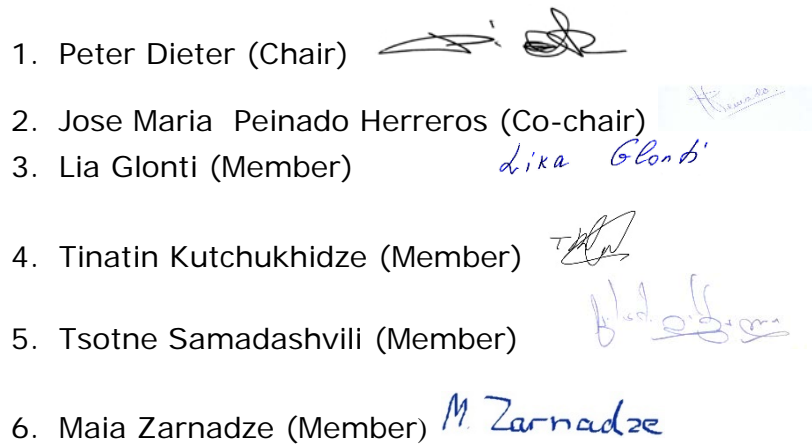 1. Peter Dieter (Chair)
2. Jose Maria Peinado Herreros (Co-chair)
3. Lia Glonti (Member) Lika Glonti
4. Tinatin Kutchukhidze (Member)
5. Tsotne Samadashvili (Member)
6. Maia Zarnadze (Member) M. Zarnadze